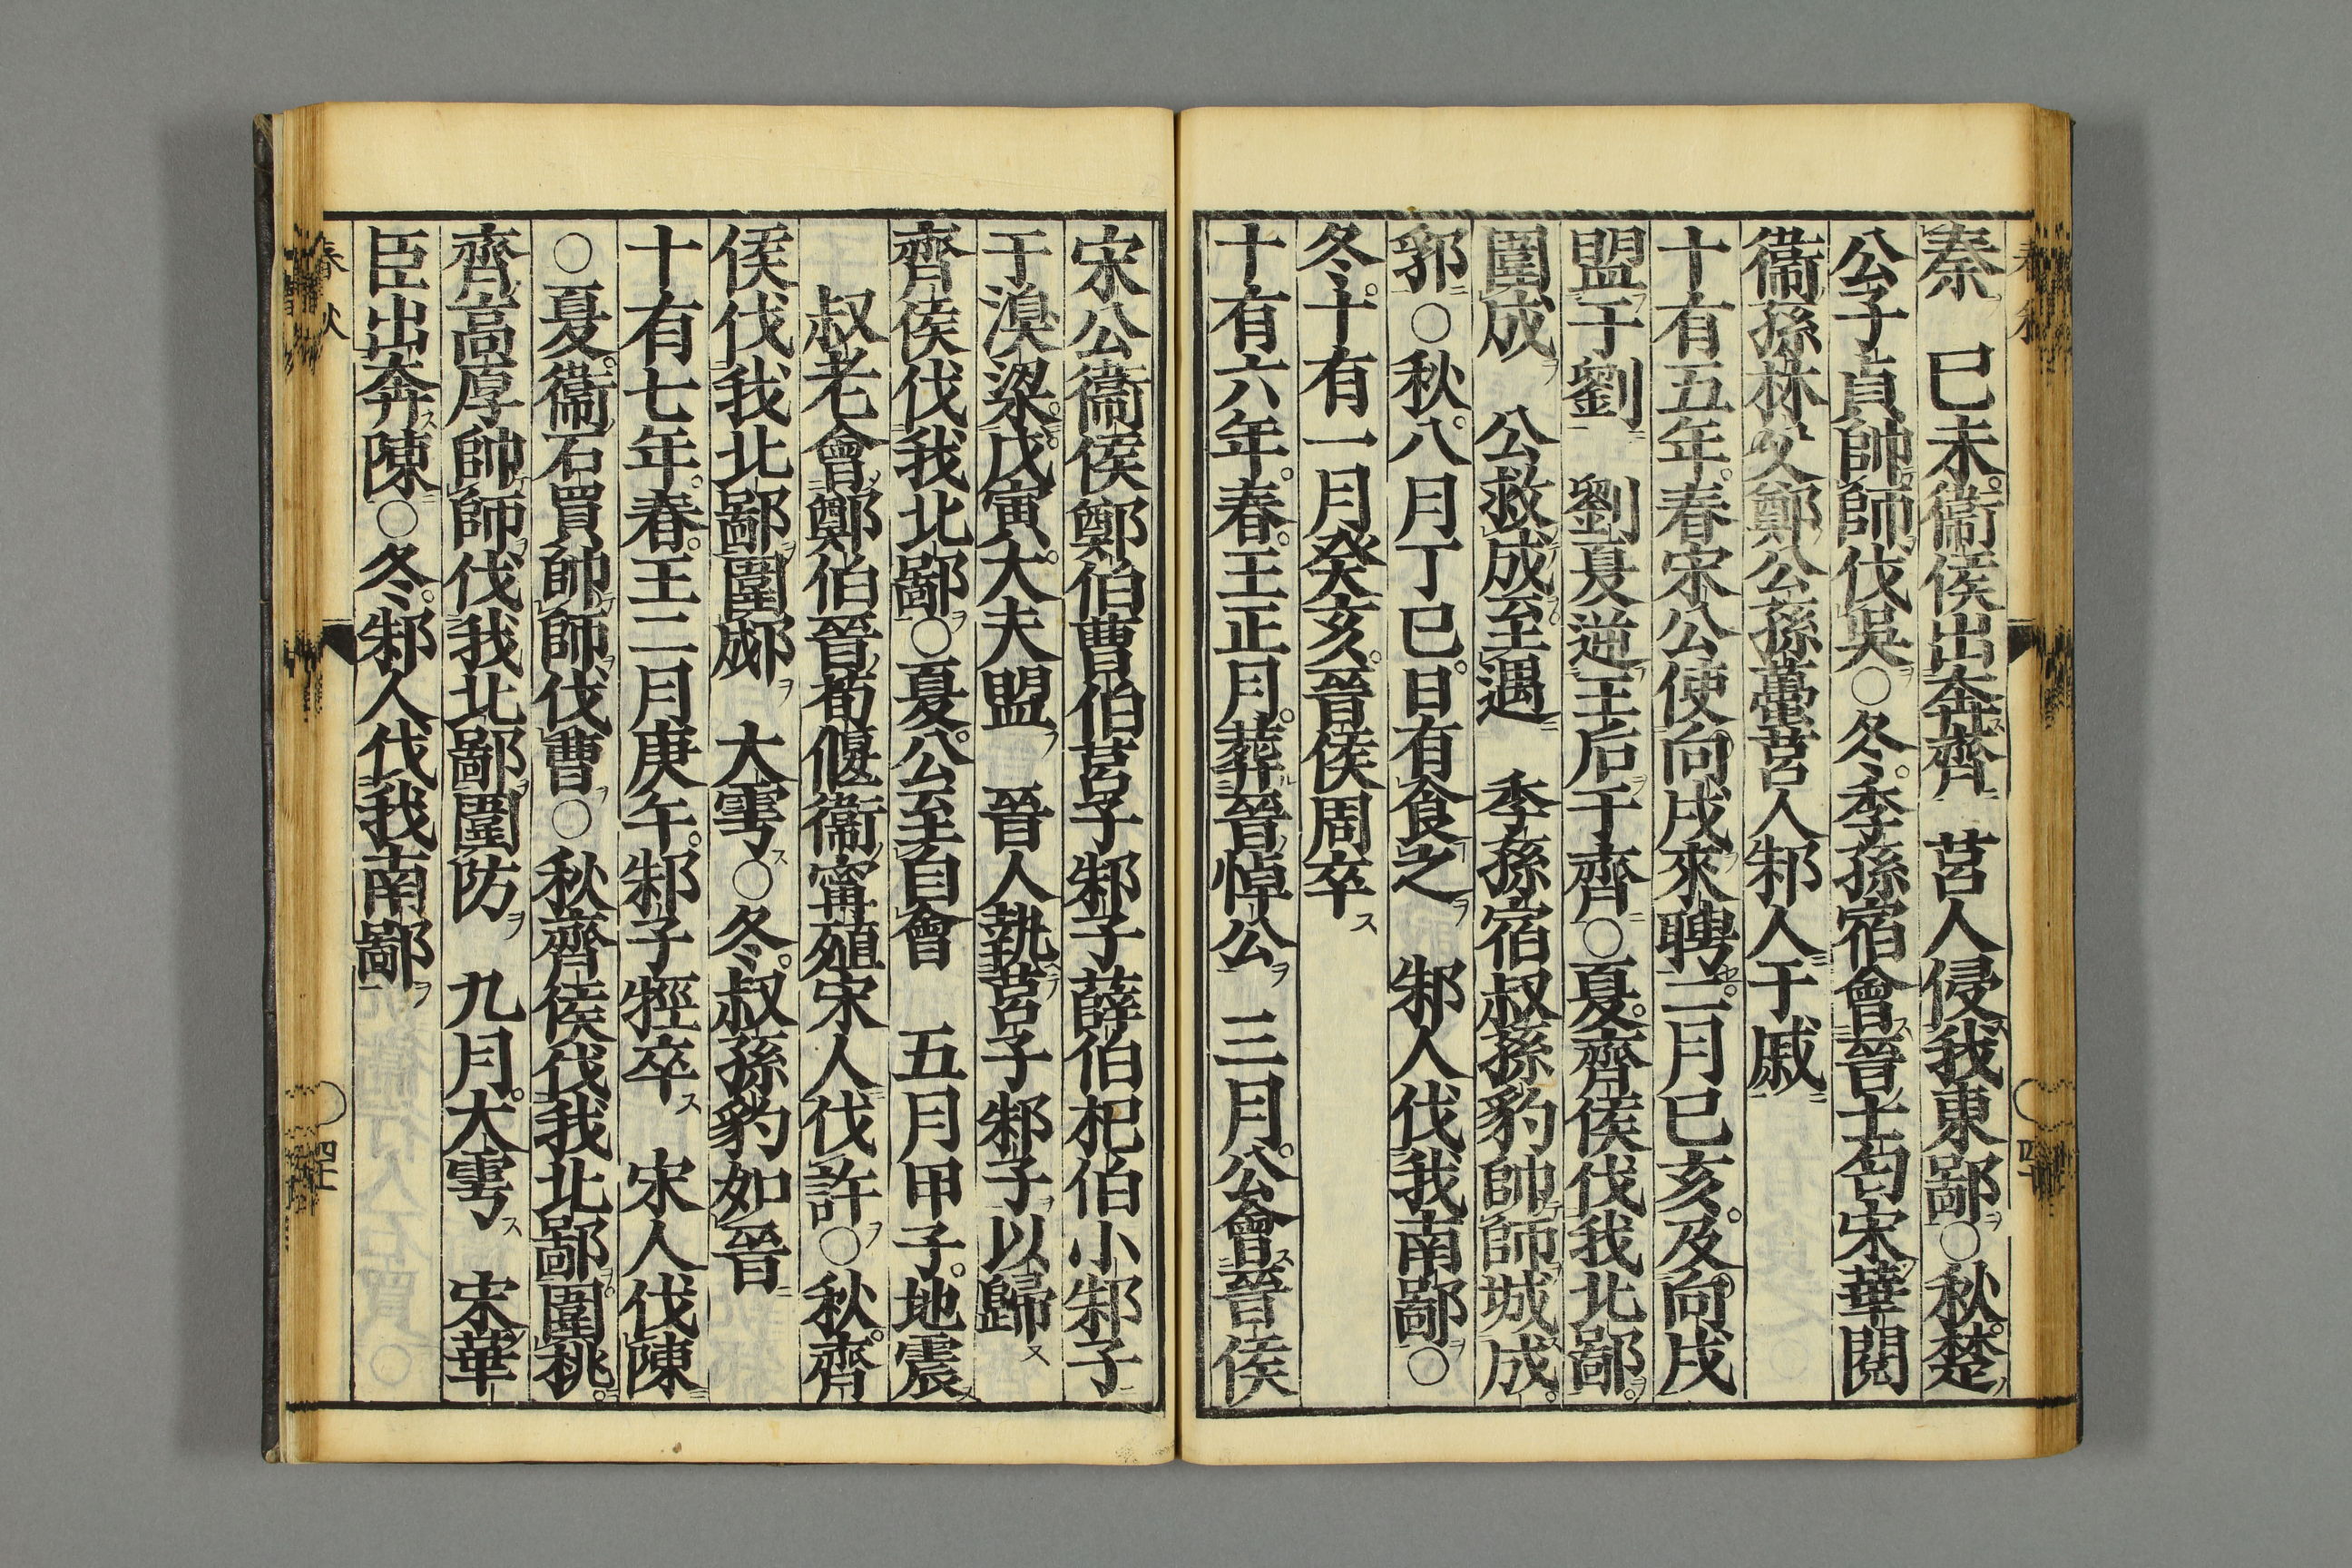 秦　已未衞侯出奔齊　莒人侵我東鄙○秋楚
公子貞帥師伐吳○冬季孫宿會晉士匄宋華閱
衞孫林父鄭公孫蠆莒人邾人于戚
十有五年春宋公使向戌來聘二月已亥及向戌
盟于劉　劉夏逆王后于齊○夏齊侯伐我北鄙
圍成　公救成至遇　季孫宿叔孫豹帥師城成
郛○秋八月丁已日有食之　邾人伐我南鄙○
冬十有一月癸亥晉侯周卒
十有六年春王正月葬晉悼公　三月公會晉侯
宋公衞侯鄭伯曹伯莒子邾子薛伯杞伯小邾子
于湨梁戊寅大夫盟　晉人執莒子邾子以歸
齊侯伐我北鄙○夏公至自會　五月甲子地震
叔老會鄭伯晉荀偃衞甯殖宋人伐許○秋齊
侯伐我北鄙圍郕　大雩○冬叔孫豹如晉
十有七年春王二月庚午邾子牼卒　宋人伐陳
○夏衞石買帥師伐曹○秋齊侯伐我北鄙圍桃
齊高厚帥師伐我北鄙圍防　九月大雩　宋華
臣出奔陳○冬邾人伐我南鄙
春秋